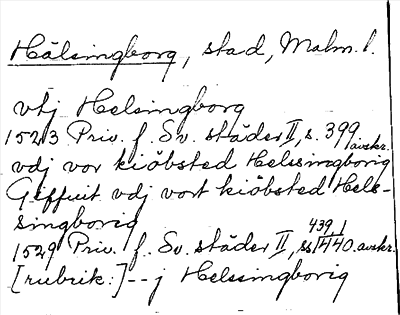 Hälsingborg, stad, Malm. l.
vtj Helsingborg
1523 Priv. f. Sv. städer II, s. 399 avskr.
vdj vor kiöbsted Helssingborig
Geffuit vdj vort kiöbsted Hels-
singborig
1529 Priv. f. Sv. städer II, ss 439 f 440. avskr.
[rubrik:] -- j Helssingborig